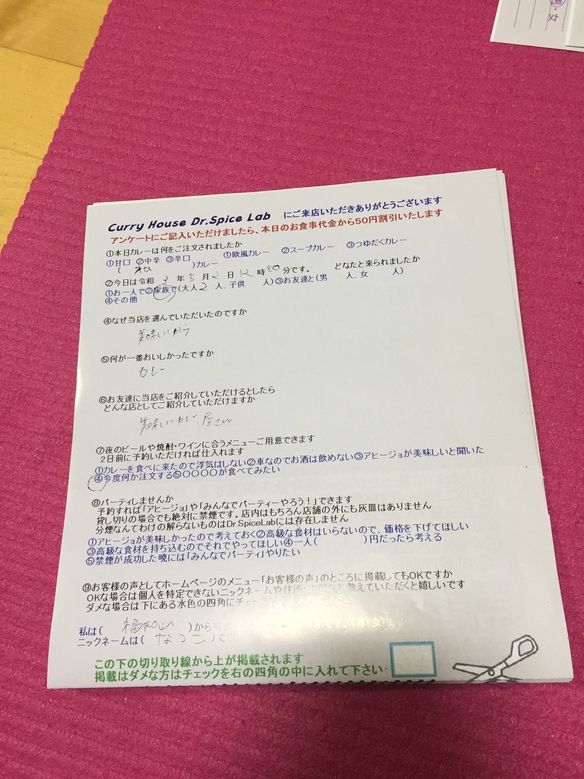 Curry House Dr.Spice Lab にご来店いただきありがとうございます
アンケートにご記入いただけましたら、本日のお食事代金から50円割引いたします
①本日カレーは何をご注文されましたか
①甘口 ②中辛 ③辛口 ①欧風カレー ②スープカレー ③つゆだくカレー
( )カレー
②今日は令和 2 年 5 月 2 日 12 時 00 分です。 どなたと来られましたか
①お一人で②家族で(大人 2 人、子供 人)③お友達と(男 人、女 人)
④その他
④なぜ当店を選んでいただいたのですか
美味しいから
⑤何が一番おいしかったですか
カレー
⑥お友達に当店をご紹介していただけるとしたら
どんな店としてご紹介していただけますか
美味しいカレー屋さん
⑦夜のビールや焼酎・ワインに合うメニューご用意できます
2日前に予約いただければ仕入れます
①カレーを食べに来たので浮気はしない②車なのでお酒は飲めない③アヒージョが美味しいと聞いた
④今度何か注文する⑤〇〇〇〇が食べてみたい
⑧パーティしませんか
予約すれば「アヒージョ」や「みんなでパーティーやろう!」できます
貸し切りの場合でも絶対に禁煙です。店内はもちろん店舗の外にも灰皿はありません
分煙なんてわけの解らないものはDr.SpiceLabには存在しません
①アヒージョが美味しかったので考えておく②高級な食材はいらないので、価格を下げてほしい
③高級な食材を持ち込むのでそれでやってほしい④一人( )円だったら考える
⑤禁煙が成功した暁には「みんなでパーティ」やりたい
⑨お客様の声としてホームページのメニュー「お客様の声」のところに掲載してもOKですか
OKな場合は個人を特定できないニックネームや住所・
えていただくと嬉しいです
ダメな場合は下にある水色の四角にチ
私は( 福知山 )から
ニックネームは(
この下の切り取り線から上が掲載されます
掲載はダメな方はチェックを右の四角の中に入れて下さい